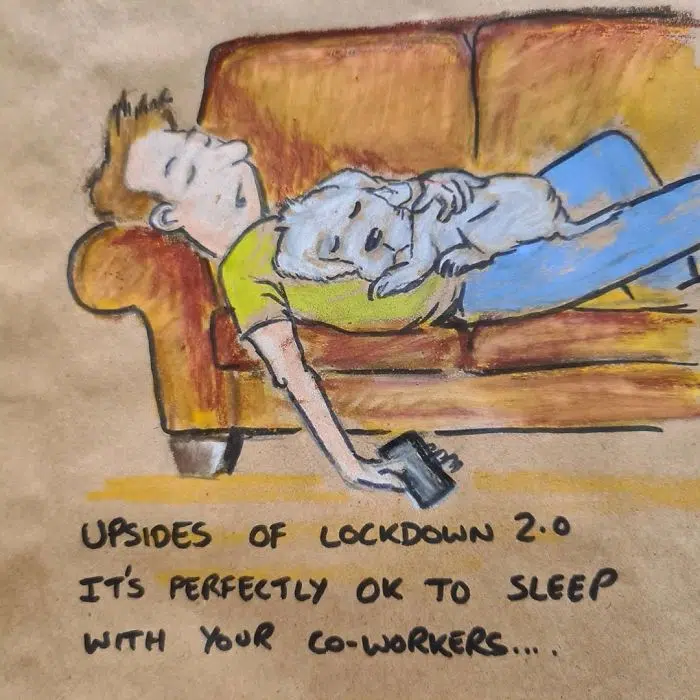 UPSIDES OF LOCKDOWN 2.0
IT'S PERFECTLY OK TO SLEEP
WITH YOUR CO-WORKERS....